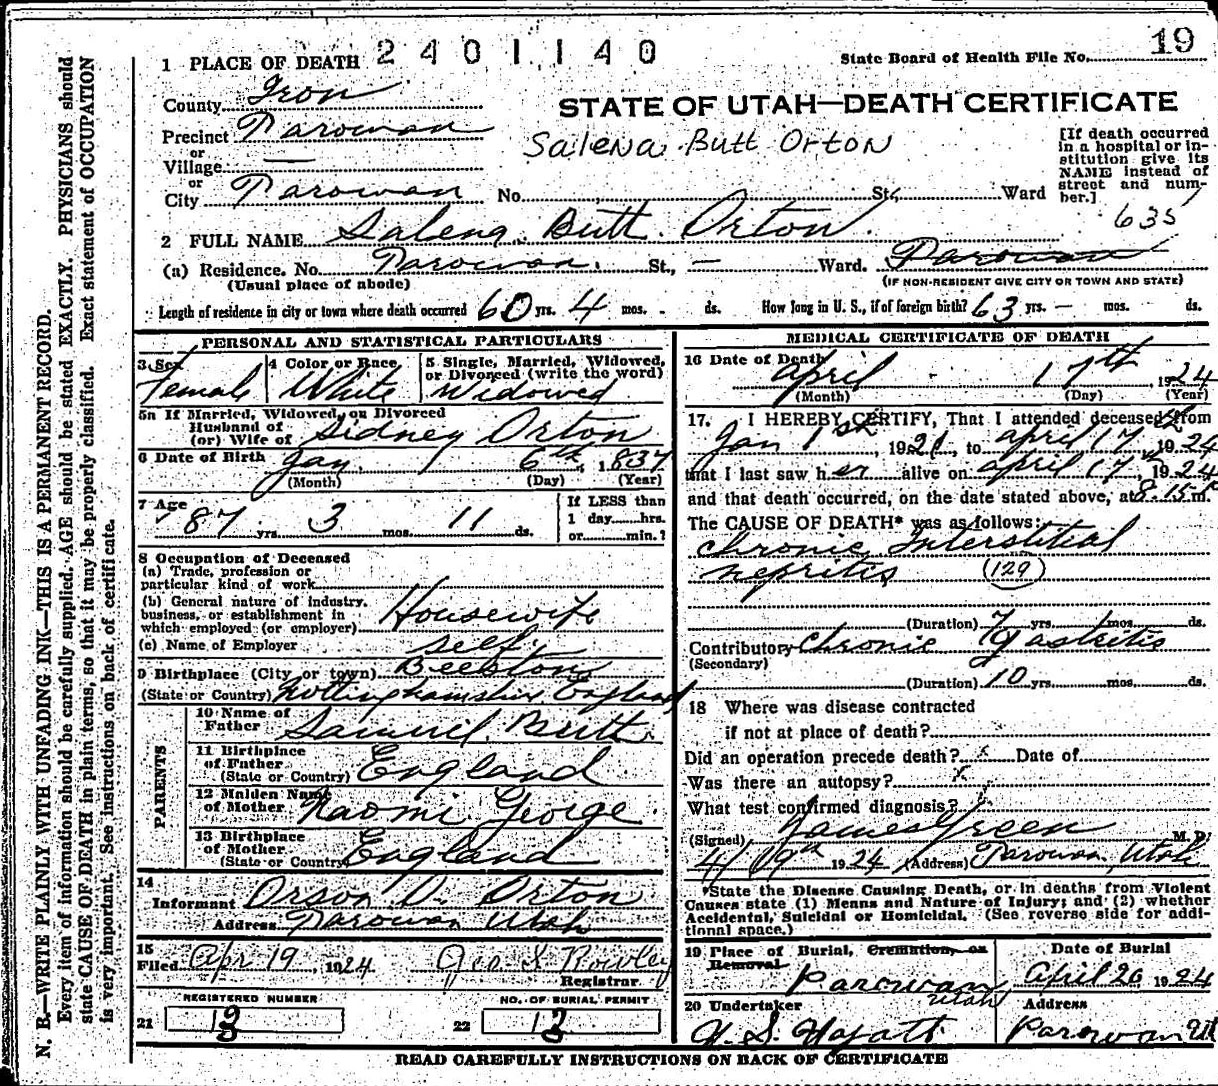 2401140
19
State Board of Health File No.
1 PLACE OF DEATH
STATE OF UTAH—DEATH CERTIFICATE
County Iron
Precinct Parowan
or
Village —
or
City Parowan No. St., Ward
Salena Butt Orton
[If death occurred
in a hospital or in-
stitution give its
NAME instead of
street and num-
ber.]
635
2 FULL NAME Salena Butt Orton.
(a) Residence. No. Parowan. St., — Ward. Parowan
(Usual place of abode)
(IF NON-RESIDENT GIVE CITY OR TOWN AND STATE)
Length of residence in city or town where death occurred 60 yrs. 4 mos. - ds. How long in U. S., if of foreign birth? 63 yrs. — mos. ds.
PERSONAL AND STATISTICAL PARTICULARS
3 Sex
Female
4 Color or Race
White
5 Single, Married, Widowed,
or Divorced (write the word)
Widowed
5a If Married, Widowed, or Divorced
Husband of
(or) Wife of Sidney Orton
6 Date of Birth Jan. 6th, 1837
(Month) (Day) (Year)
7 Age
87 yrs. 3 mos. 11 ds.
If LESS than
1 day hrs.
or min.?
8 Occupation of Deceased
(a) Trade, profession or
particular kind of work
(b) General nature of industry,
business, or establishment in
which employed (or employer) Housewife
(c) Name of Employer self.
9 Birthplace (City or town) Beebton
(State or Country) Nottinghamshire England
PARENTS
10 Name of
Father Samuil Butt.
11 Birthplace
of Father
(State or Country) England
12 Maiden Name
of Mother Naomi George.
13 Birthplace
of Mother
(State or Country) England
14
Informant Orson D. Orton
Address Parowan Utah
15
Filed Apr 19, 1924 Geo S Rowley
Registrar
REGISTERED NUMBER
21
NO. OF BURIAL PERMIT
22
MEDICAL CERTIFICATE OF DEATH
16 Date of Death
April - 17th, 1924
(Month) (Day) (Year)
17. I HEREBY CERTIFY, That I attended deceased from
Jan 1st, 1921, to april 17th, 1924
that I last saw her alive on april 17th, 1924
and that death occurred, on the date stated above, at 8.15 P m.
The CAUSE OF DEATH* was as follows:
Chronic Interstitial
nepritis (129)
(Duration) 7 yrs. mos. ds.
Contributory Chronic gastritis
(Secondary)
(Duration) 10 yrs. mos. ds.
18 Where was disease contracted
if not at place of death?
Did an operation precede death? x Date of
Was there an autopsy? x
What test confirmed diagnosis?
(Signed) James Green M. D.
4/19th 1924 (Address) Parowan, Utah
*State the Disease Causing Death, or in deaths from Violent
Causes state (1) Means and Nature of Injury; and (2) whether
Accidental, Suicidal or Homicidal. (See reverse side for addi-
tional space.)
19 Place of Burial, Cremation, or
Removal
Parowan
Utah
Date of Burial
April 20 1924
20 Undertaker
Address
Parowan Ut
READ CAREFULLY INSTRUCTIONS ON BACK OF CERTIFICATE
N. B.—WRITE PLAINLY WITH UNFADING INK—THIS IS A PERMANENT RECORD.
Every item of information should be carefully supplied. AGE should be stated EXACTLY. PHYSICIANS should
state CAUSE OF DEATH in plain terms, so that it may be properly classified. Exact statement of OCCUPATION
is very important. See instructions on back of certificate.